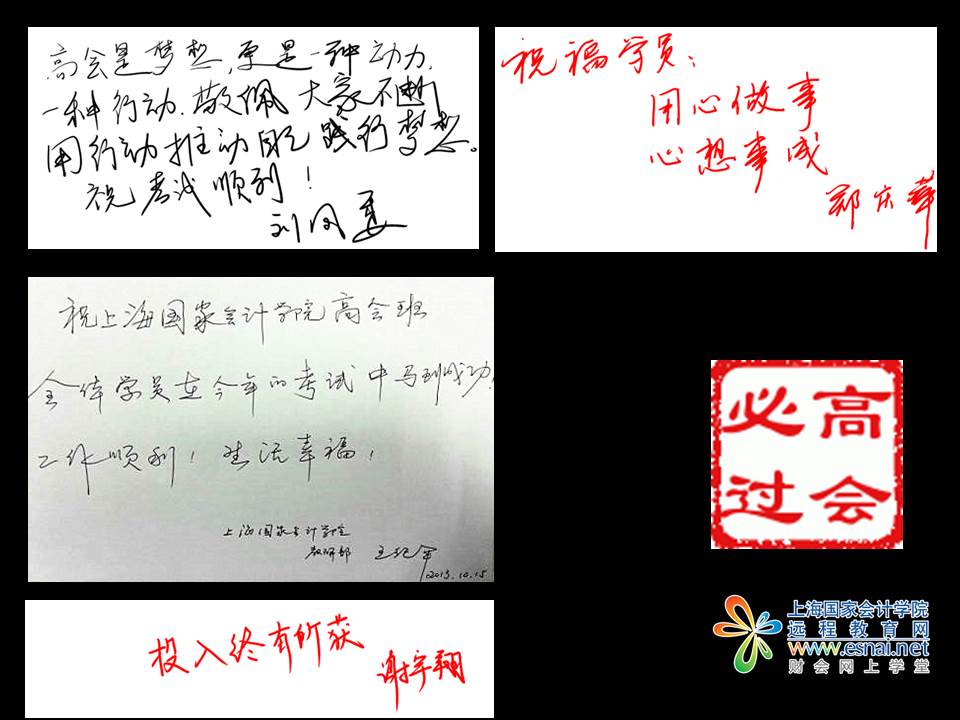 高会是梦想,更是一种动力,
一种行动.敬佩大家不断
用行动推动自己践行梦想。
祝考试顺利!
刘凤
祝福学员:
用心做事
心想事成
郑庆华
祝上海国家会计学院高会班
全体学员在今年的考试中马到成功!
工作顺利!生活幸福!
上海国家会计学院
教研部 王纪平
2013.10.15
投入终有所获
谢宇翔
必高
过会
上海国家会计学院
远程教育网
www.esnai.net
财会网上学堂